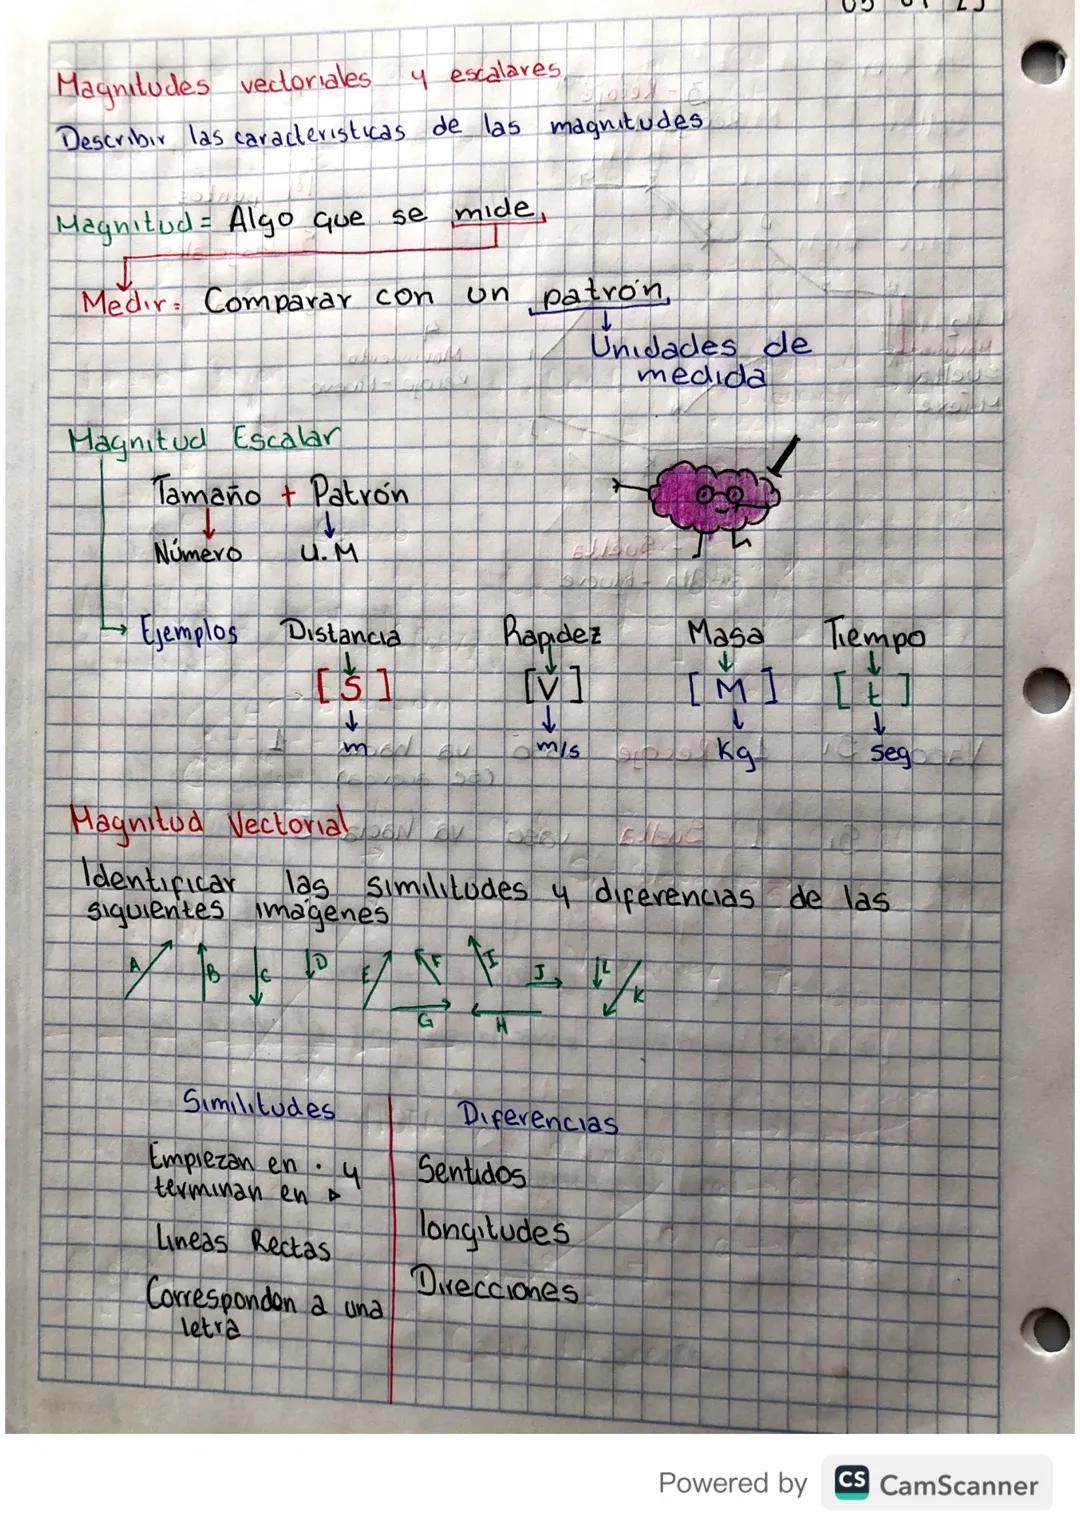 Magnitudes vectoriales y escalares
Describir las caracteristicas de las magnitudes
Magnitud = Algo que se mide
Medir = Comparar con un patrón
Unidades de
medida
Magnitud Escalar
Tamaño + Patrón
Número U.M
Ejemplos Distancia Rapidez Masa Tiempo
[S] [V] [M] [t]
m m/s Kg seg
Magnitud Vectorial
Identificar las similitudes y diferencias de las
siguientes imágenes
A B C D E F I J L K
G H
Similitudes Diferencias
Empiezan en . y Sentidos
terminan en ▷
Lineas Rectas longitudes
Correspondon a una Direcciones
letra
Powered by CS CamScanner